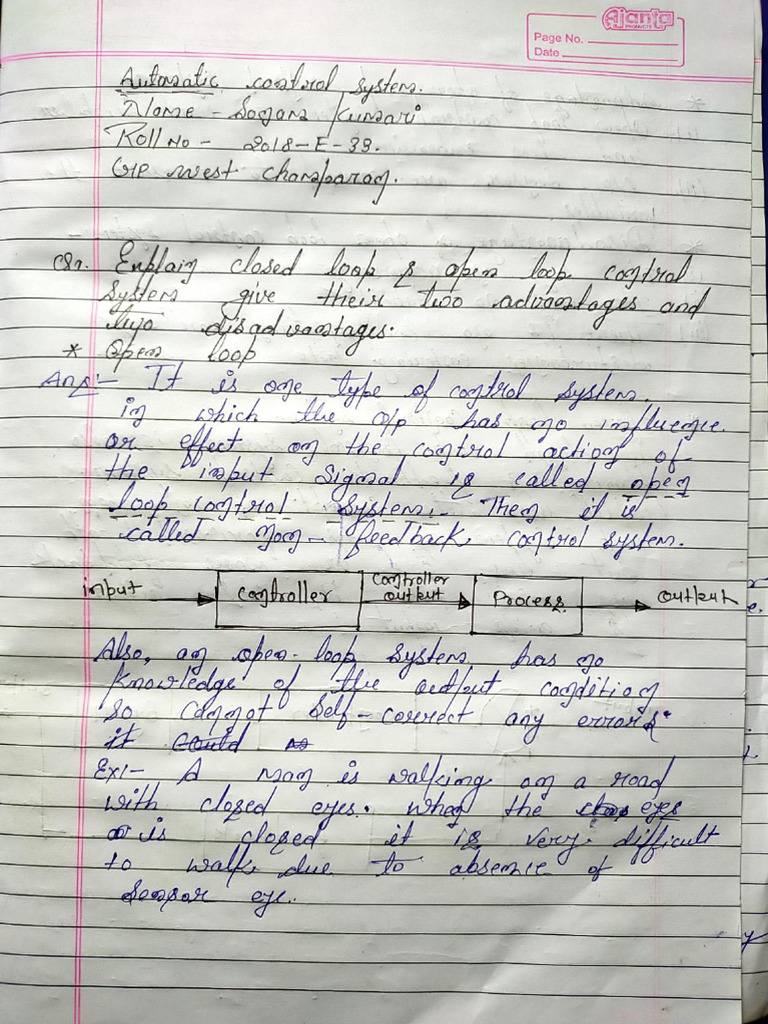 Ajanta
PRODUCTS
Page No.
Date
Automatic control system.
Name - Sogam Kumari
Roll No - 2018-E-33.
GP west champaran.
Q1. Explain closed loop & open loop control
system give their two advantages and
two disadvantages.
* Open loop
Ans:- It is one type of control system.
in which the o/p has no influence.
or effect on the control action of
the input signal is called open
loop control system.- Then it is
called non-feedback control system.
input controller controller output Process output
Also, an open-loop system, has no
knowledge of the output condition
so cannot self-correct any errors.
it could
Ex:- A man is walking on a road
with closed eyes. when the eyes
is closed it is very difficult
to walk due to absence of
sensor eye.